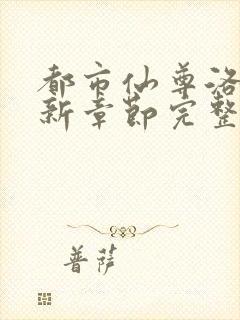 都市仙尊洛
新章节完整
普萨